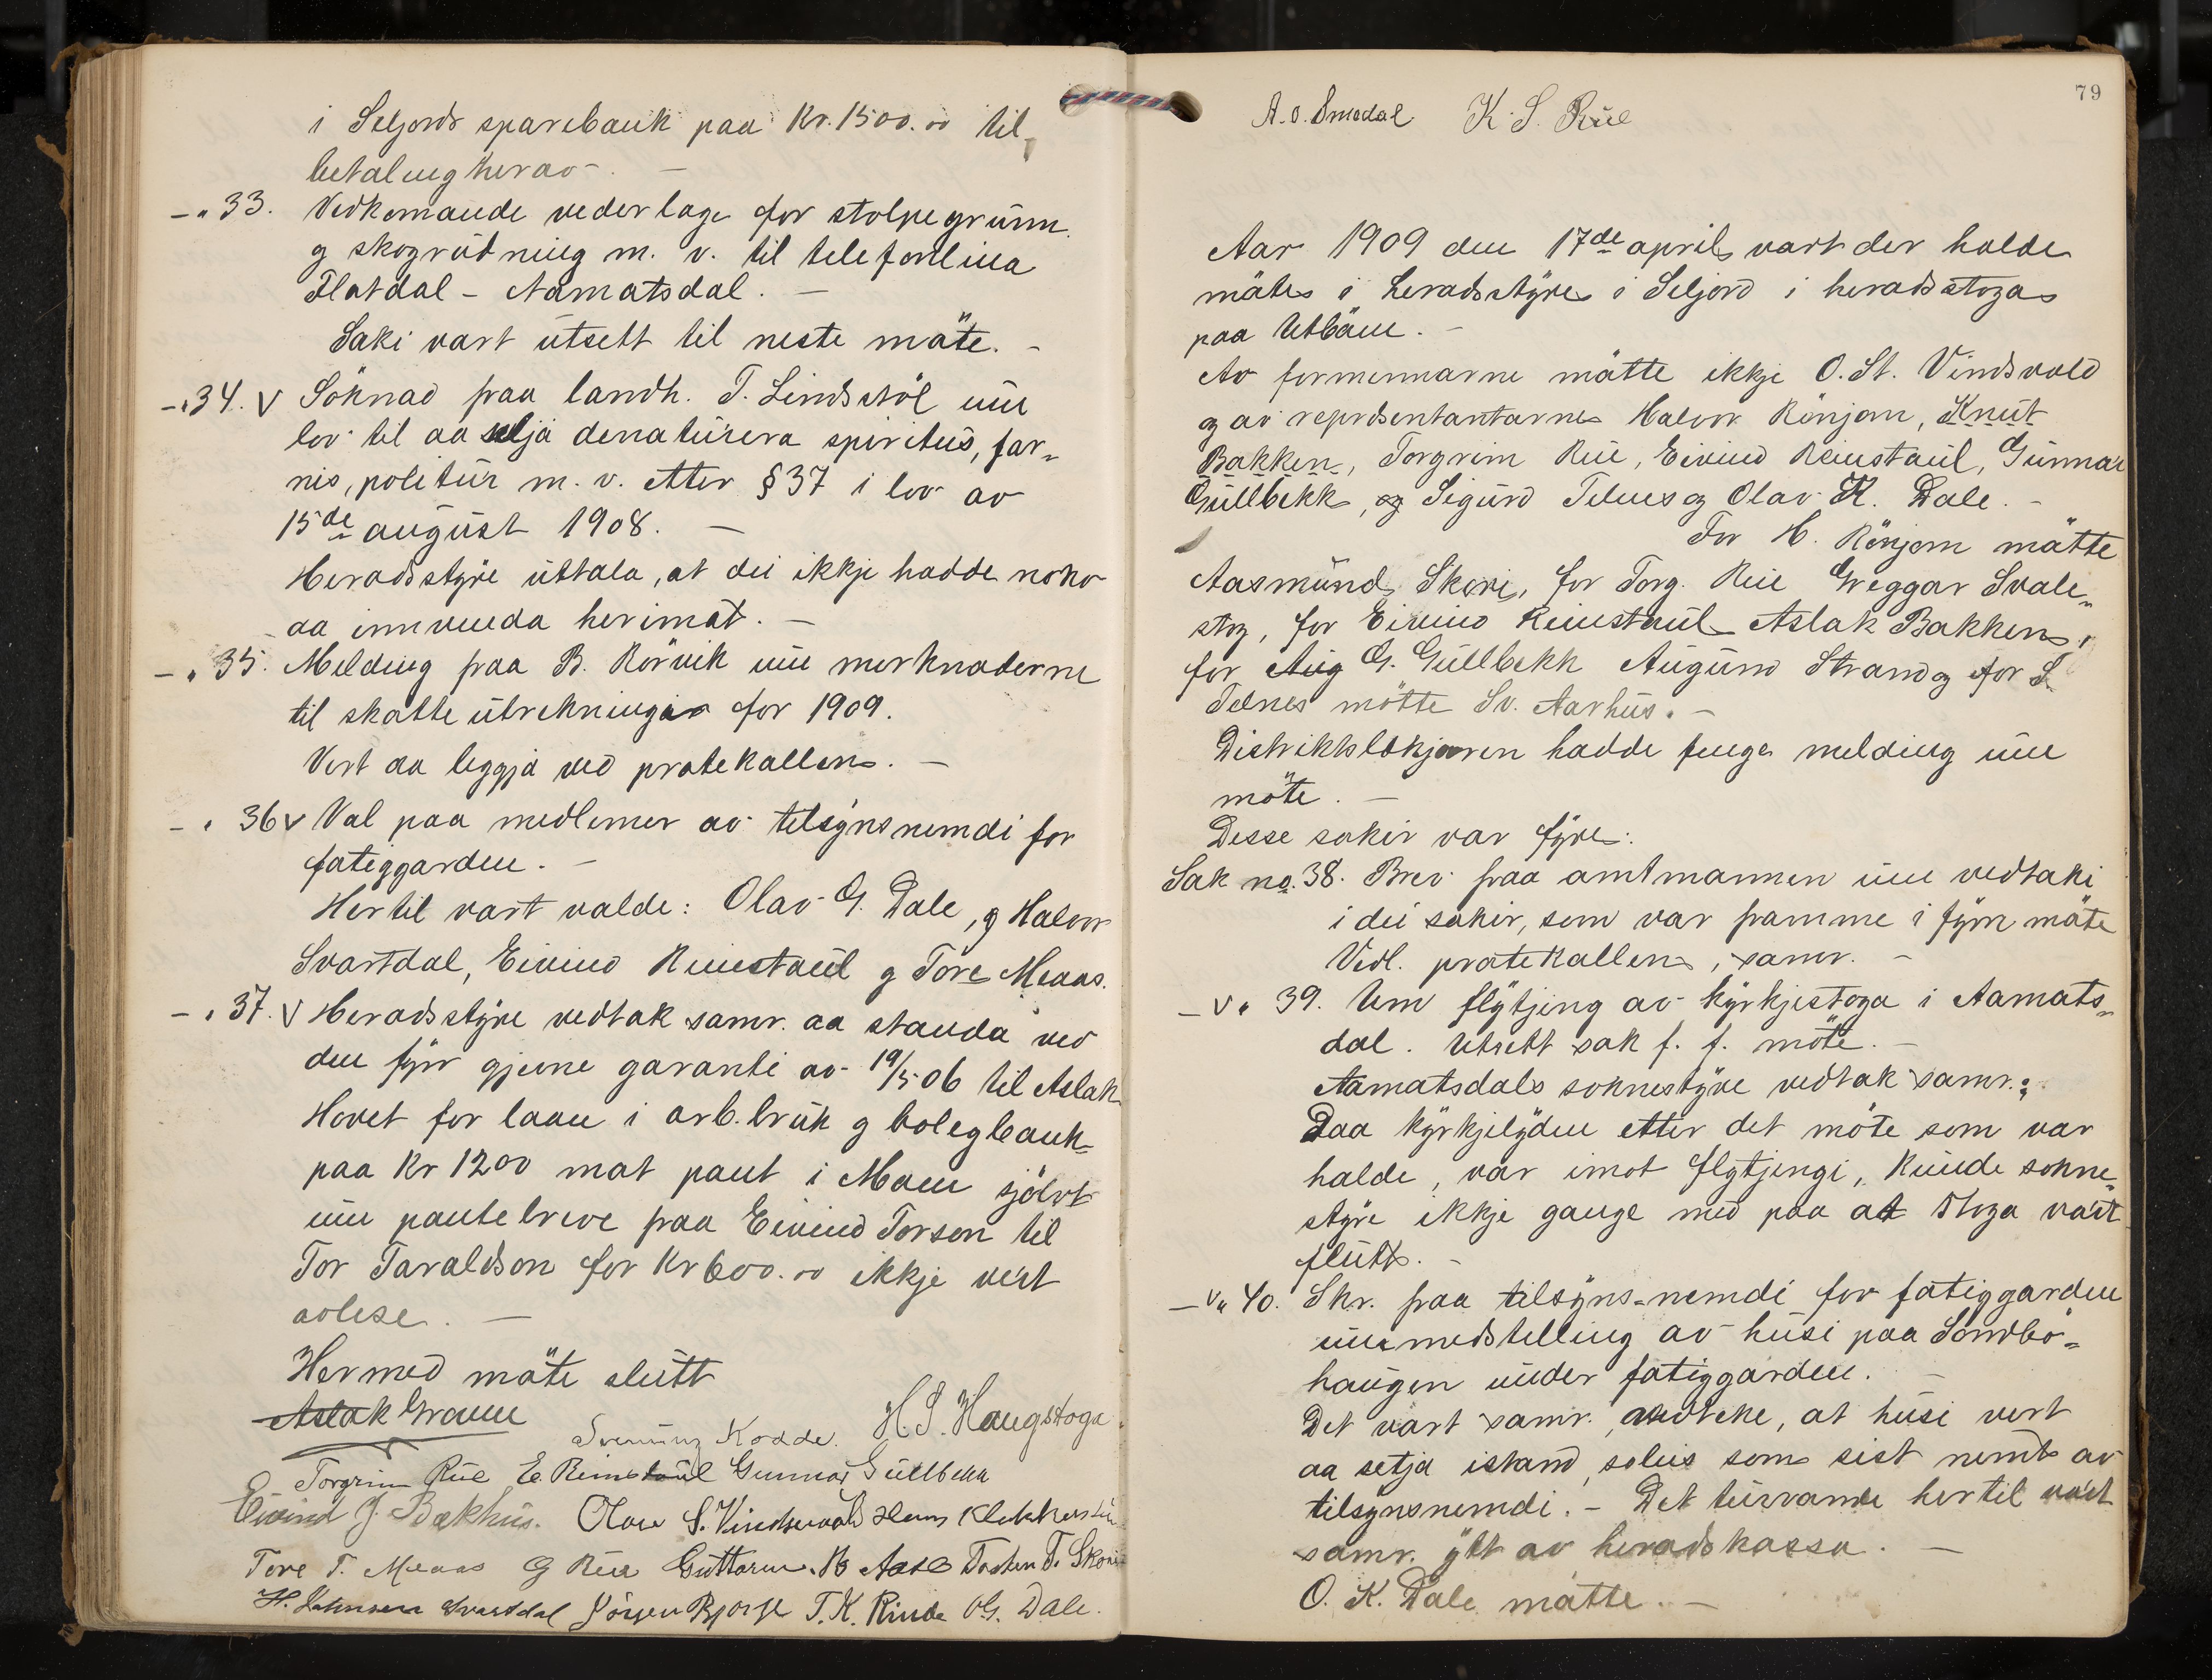 i Seljords sparebank paa Kr. 1500.00 til
betaling herav. —
—„ 33. Vedkomande vederlage for stolpegrunn
og skogrudning m. v. til telefonlina
Flatdal - Aamatsdal. —
Saki vart utsett til neste møte. —
—„ 34. V Søknad fraa landh. T. Lindstøl um
lov til aa selja denaturera spiritus, fer-
nis, politur m. v. etter § 37 i lov av
15de august 1908. —
Heradsstyre uttala, at dei ikkje hadde noko
aa innvenda herimot. —
—„ 35. Melding fraa B. Rørvik um merknaderne
til skatteutrekningi for 1909.
Vert aa leggja ved protokollen. —
—„ 36 V Val paa medlemer av tilsynsnemdi for
fatiggarden. —
Hertil vart valde: Olav G. Dale, og Halvor
Svartdal, Eivind Reinstaul og Tore Meaas.
—„ 37. V Heradsstyre vedtok samr. aa standa ved
den fyrr gjevne garanti av 19/5 06 til Aslak
Hovet for laan i arb.bruk og bolegbank
paa Kr 1200 mot pant i Moen sjølvt
um pantebreve fraa Eivind Torson til
Tor Taraldson for Kr 600.00 ikkje vert
avlese. —
Hermed møte slutt
Aslak Graver
Svenung Kodde. H. S. Haugstoga
Torgrim Rue E Reinstaul Gunnar Gullbekk
Eivind J. Bakhus. Olav S. Vindsvold
Tore T. Meaas G Rue Guttorm B Aase Torstein T. Skori
H. Svartdal Jörgen Bjorge T. K. Rinde O G. Dale.
79
A. O. Smedal K. S. Rue
Aar 1909 den 17de april vart der halde
møte i heradsstyre i Seljord i heradsstoga
paa Utbøen. —
Av formennarne møtte ikkje O. St. Vindsvold
og av representantarne Halvor Rönjom, Knut
Bakken, Torgrim Rue, Eivind Reinstaul, Gunnar
Gullbekk, og Sigurd Telnes og Olav K. Dale. —
For H. Rönjom møtte
Aasmund Skori, for Torg. Rue Greggar Svale-
stog, for Eivind Reinstaul Aslak Bakken,
for Aug G. Gullbekk Augund Strand og for S.
Telnes møtte Sv. Aarhus. —
Distriktslækjaren hadde fenge melding um
møte. —
Desse sakir var fyre:
Sak no. 38. Brev fraa amtmannen um vedtaki
i dei sakir, som var framme i fyrr møte
Vedl. protokollen, samr. —
— V „ 39. Um flytjing av kyrkjestoga i Aamats-
dal. Utsett sak f. f. møte. —
Aamatsdals soknestyre vedtok samr.:
Daa kyrkjelyden etter det møte som var
halde, var imot flytjingi, kunde sokne-
styre ikkje gange med paa at stoga vart
flutt. —
— V „ 40. Skr. fraa tilsyns-nemdi for fatiggarden
um istandstelling av husi paa Sondbø-
haugen under fatiggarden. —
Det vart samr. vedteke, at husi vert
aa setja istand soleis som sist nemt av
tilsynsnemdi. — Det turvande hertil vart
samr. ytt av heradskassa. —
O. K. Dale møtte. —